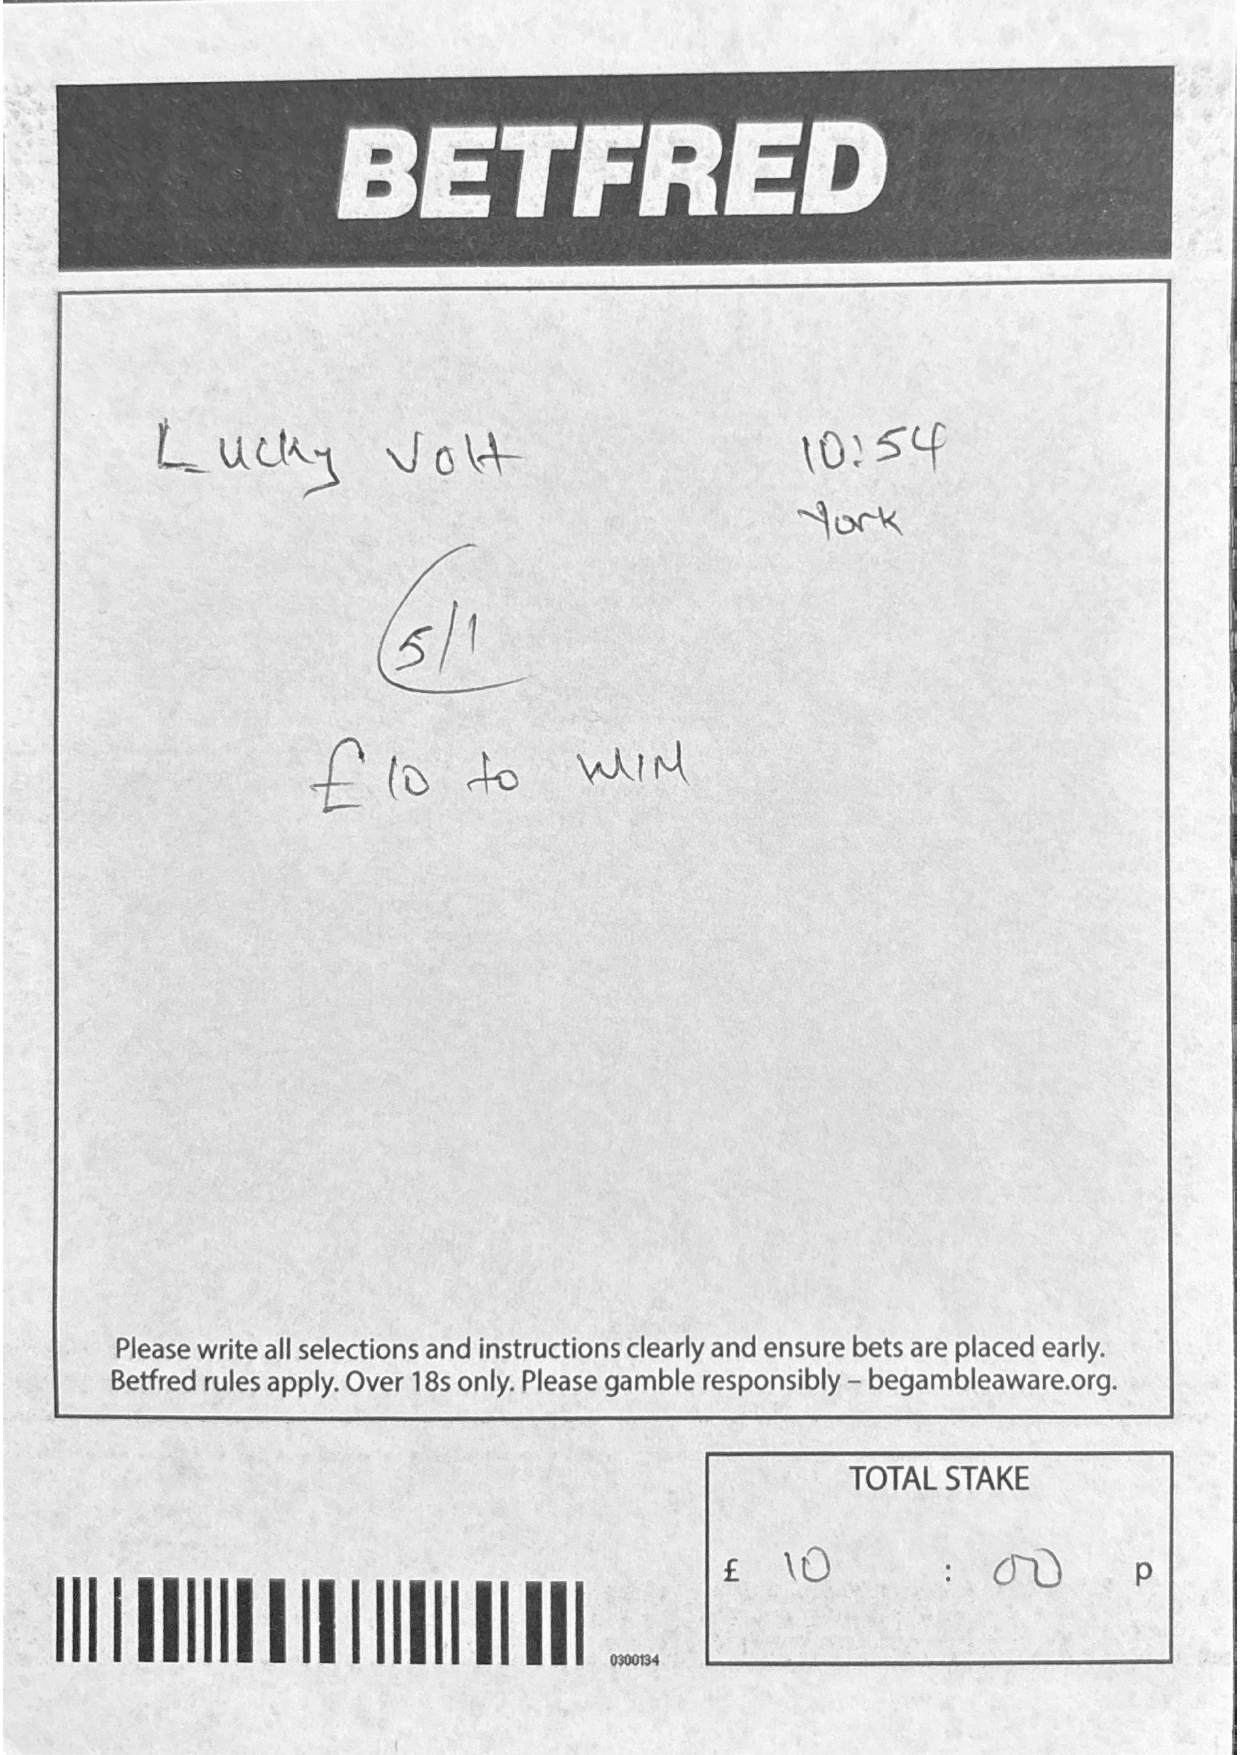 BETFRED
Lucky Volt 10:54
York
5/1
£10 to WIN
Please write all selections and instructions clearly and ensure bets are placed early.
Betfred rules apply. Over 18s only. Please gamble responsibly – begambleaware.org.
TOTAL STAKE
£ 10 : 00 p
0300134